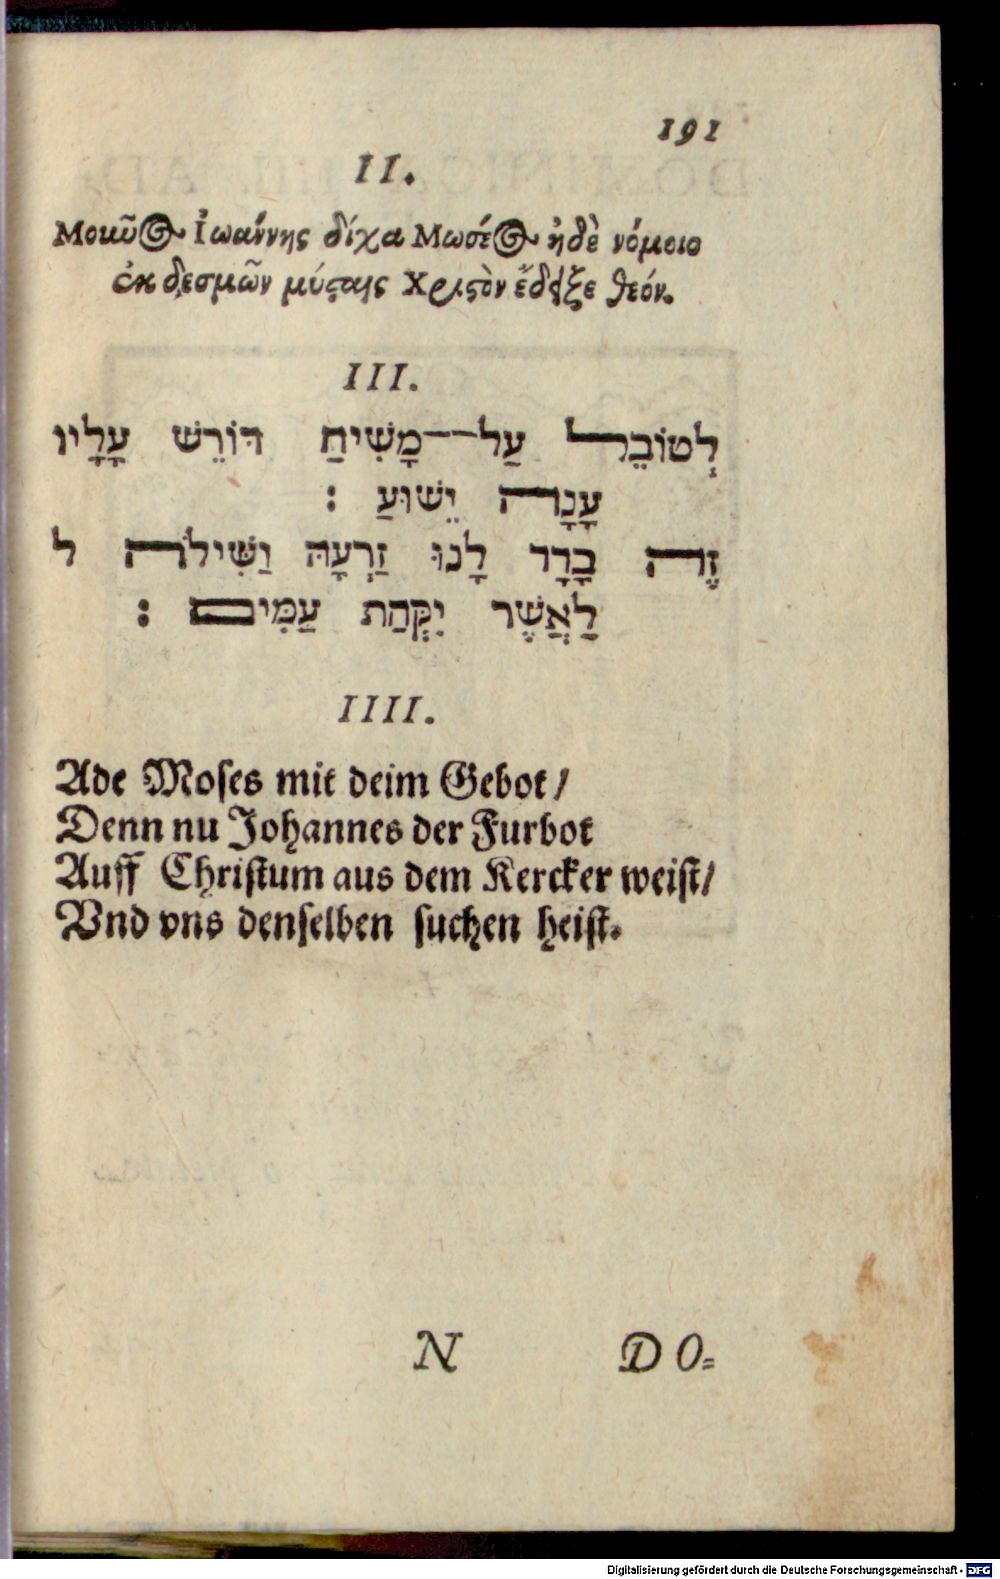 191
II.
Μοκῦος Ἰωάννης δίχα Μωσέος ἠδὲ νόμοιο
ἐκ δεσμῶν μύσταις Χριστὸν ἔδειξε θεόν.
III.
לְטוֹבֵל עַל־־מָשִׁיחַ דּוֹרֵשׁ עָלָיו
עָנָה יֵשׁוּעַ :
זֶה בָדָד לָנוּ זַרְעָהּ וַשִּׁילֹה ל
לַאֲשֶׁר יִקְּהַת עַמִּים :
IIII.
Ade Moses mit deim Gebot/
Denn nu Johannes der Furbot
Auff Christum aus dem Kercker weist/
Vnd vns denselben suchen heist.
N DO=
Digitalisierung gefördert durch die Deutsche Forschungsgemeinschaft - DFG